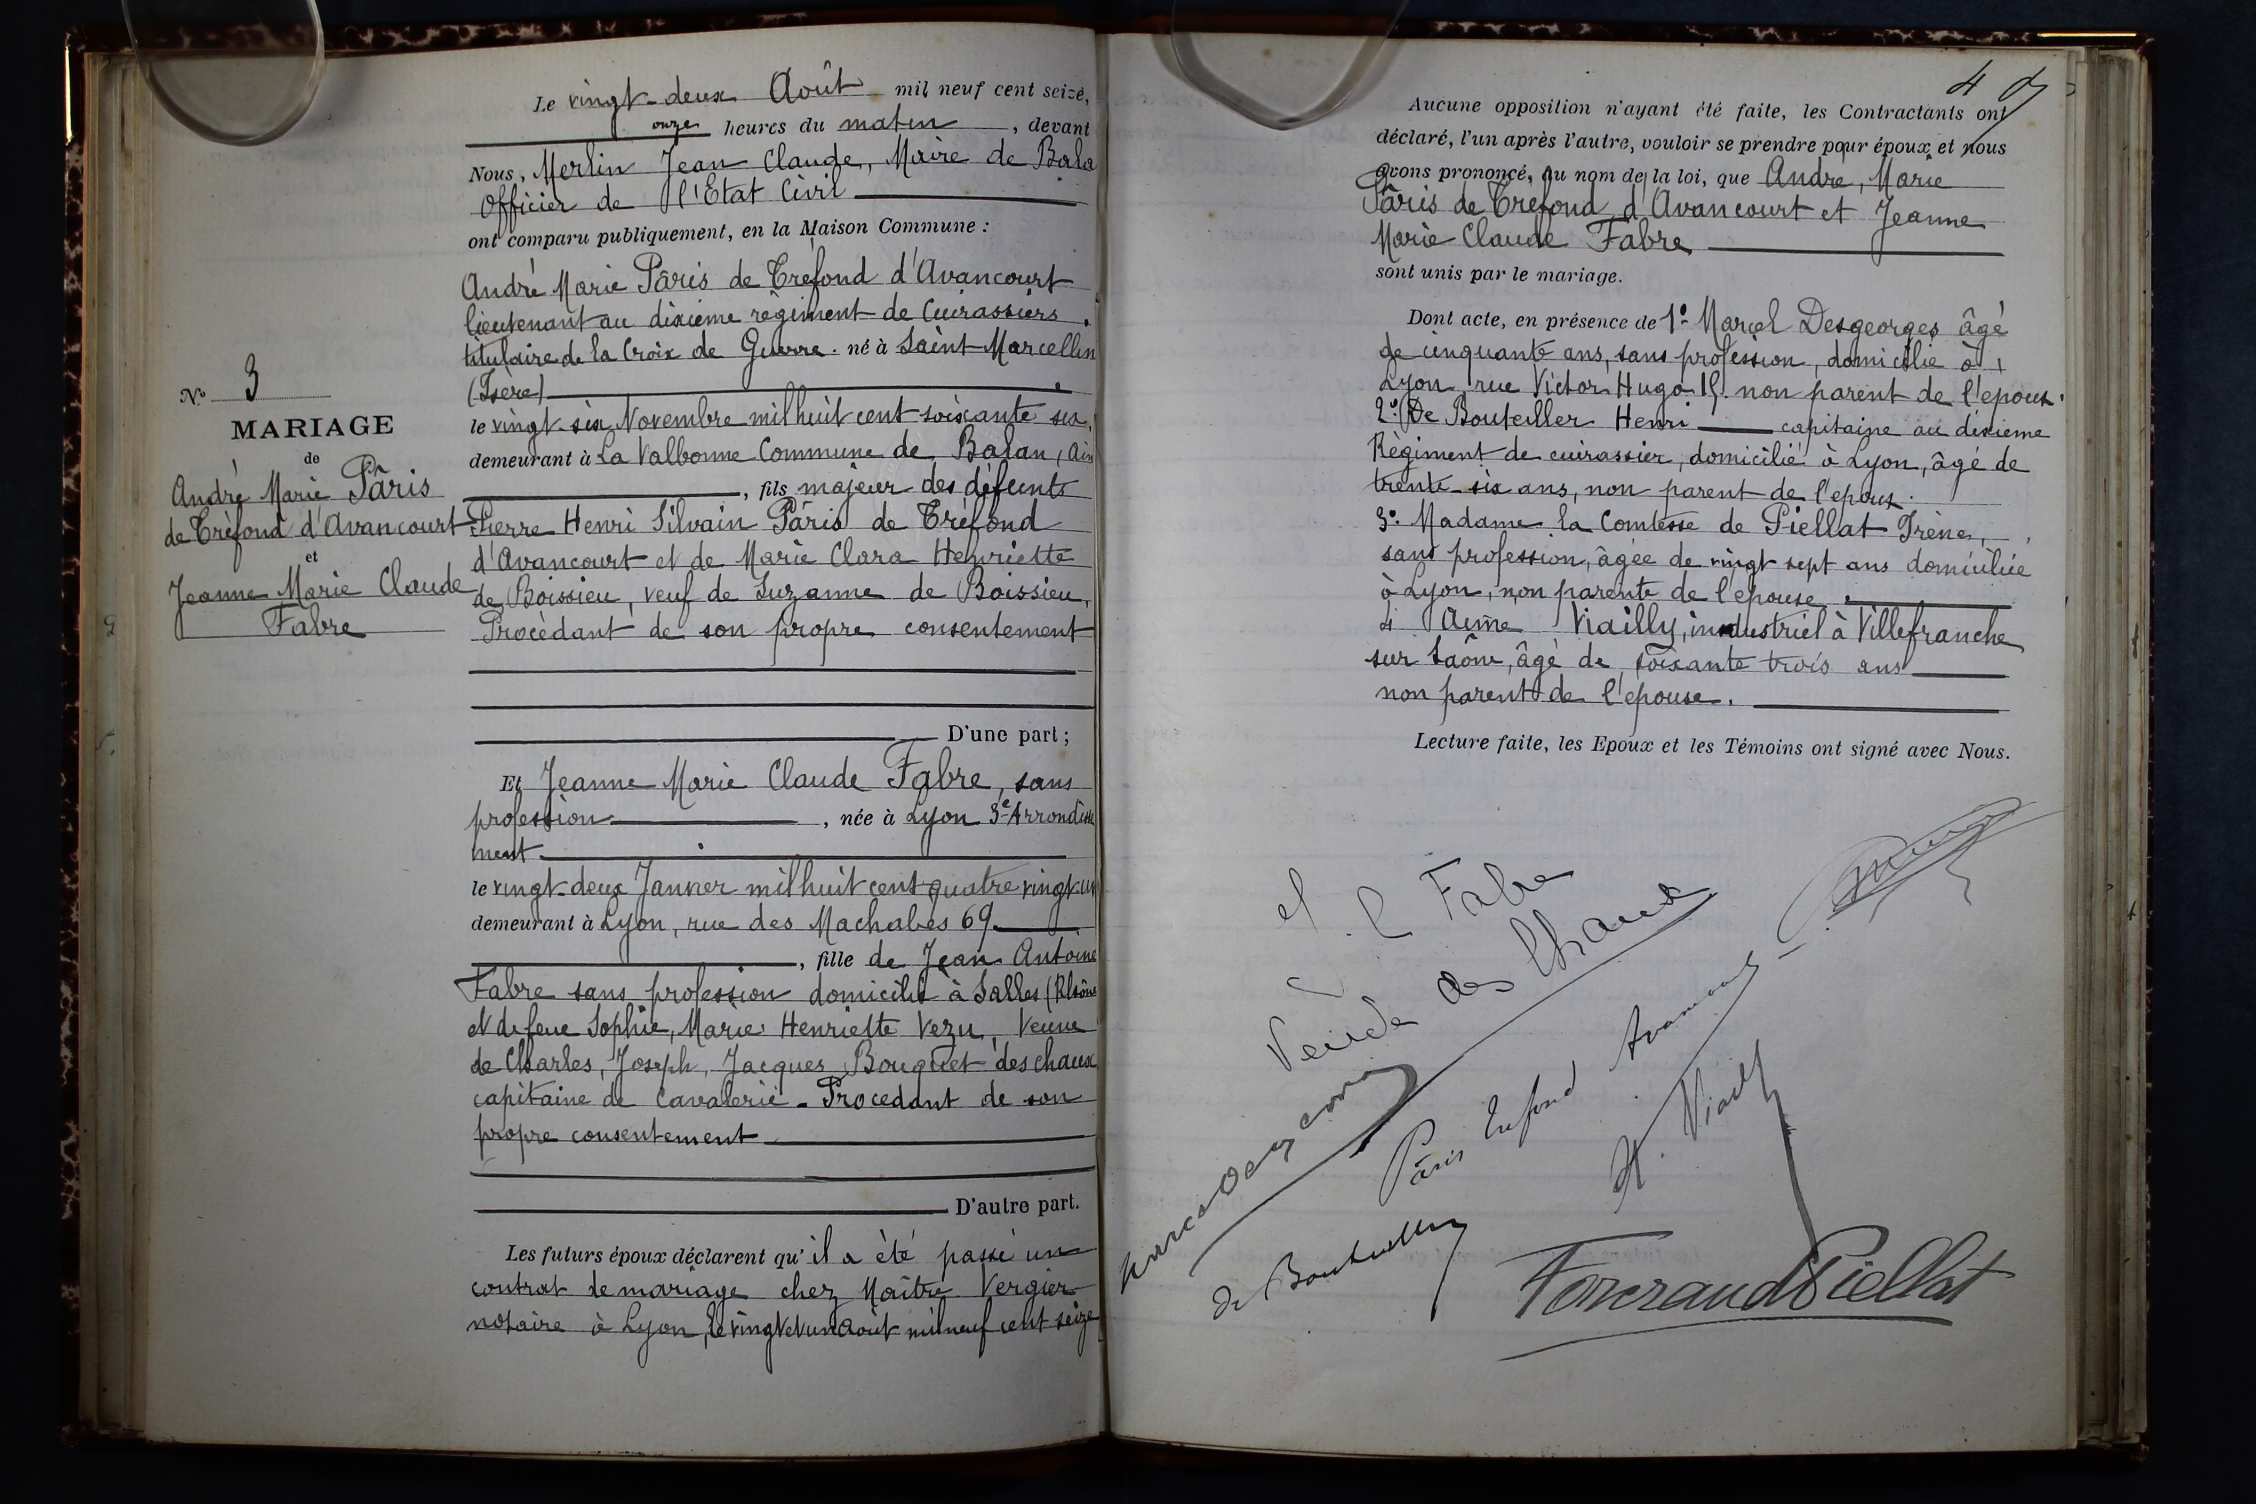 Le vingt-deux Août mil neuf cent seize,
onze heures du matin, devant
Nous, Merlin Jean Claude, Maire de Bala
Officier de l'Etat Civil
ont comparu publiquement, en la Maison Commune :
André Marie Pâris de Tréfond d'Avancourt
lieutenant au dixième règiment de Cuirassiers.
titulaire de la Croix de Guerre. né à Saint-Marcellin
(Isere)
le vingt-six Novembre mil huit cent soixante six,
demeurant à La Valbonne Commune de Balan, Ain
, fils majeur des défunts
Pierre Henri Silvain Pâris de Tréfond
d'Avancourt et de Marie Clara Henriette
de Boissieu, veuf de Suzanne de Boissieu,
Procèdant de son propre consentement
D'une part ;
No 3
MARIAGE
de
André Marie Pâris
de Tréfond d'Avancourt
et
Jeanne Marie Claude
Fabre
Et Jeanne Marie Claude Fabre, sans
profession, née à Lyon 3e Arrondisse
ment
le vingt-deux Janvier mil huit cent quatre vingt un
demeurant à Lyon, rue des Machabés 69
, fille de Jean Antoine
Fabre sans profession domicilié à Salles (Rhône
et de feue Sophie, Marie Henriette Vezu, Veuve
de Charles, Joseph, Jacques Bouquet des Chaux
capitaine de Cavalerie. Procedant de son
propre consentement
D'autre part.
Les futurs époux déclarent qu'il a été passé un
contrat de mariage chez Maître Vergier
notaire à Lyon, le vingt et un août mil neuf cent seize
4
Aucune opposition n'ayant été faite, les Contractants ont
déclaré, l'un après l'autre, vouloir se prendre pour époux et nous
avons prononcé, au nom de la loi, que Andre, Marie
Pâris de Tréfond d'Avancourt et Jeanne
Marie Claude Fabre
sont unis par le mariage.
Dont acte, en présence de 1o Marcel Desgeorges âgé
de cinquante ans, sans profession, domicilié à
Lyon rue Victor Hugo 15 non parent de l'epoux.
2o De Bouteiller Henri capitaine au dixieme
Règiment de cuirassier, domicilié à Lyon, âgé de
trente-six ans, non parent de l'epoux.
3o Madame la Comtesse de Piellat Irène,
sans profession, âgée de vingt sept ans domiciliée
à Lyon, non parente de l'epouse
4 Aimé Viailly, industriel à Villefranche
sur Saône, âgé de soixante trois ans
non parent de l'epouse.
Lecture faite, les Epoux et les Témoins ont signé avec Nous.
Fabre
Veuve des Chaux
Pâris Trefond Avancourt
Viailly
de Bouteiller
Forcrand Piellat